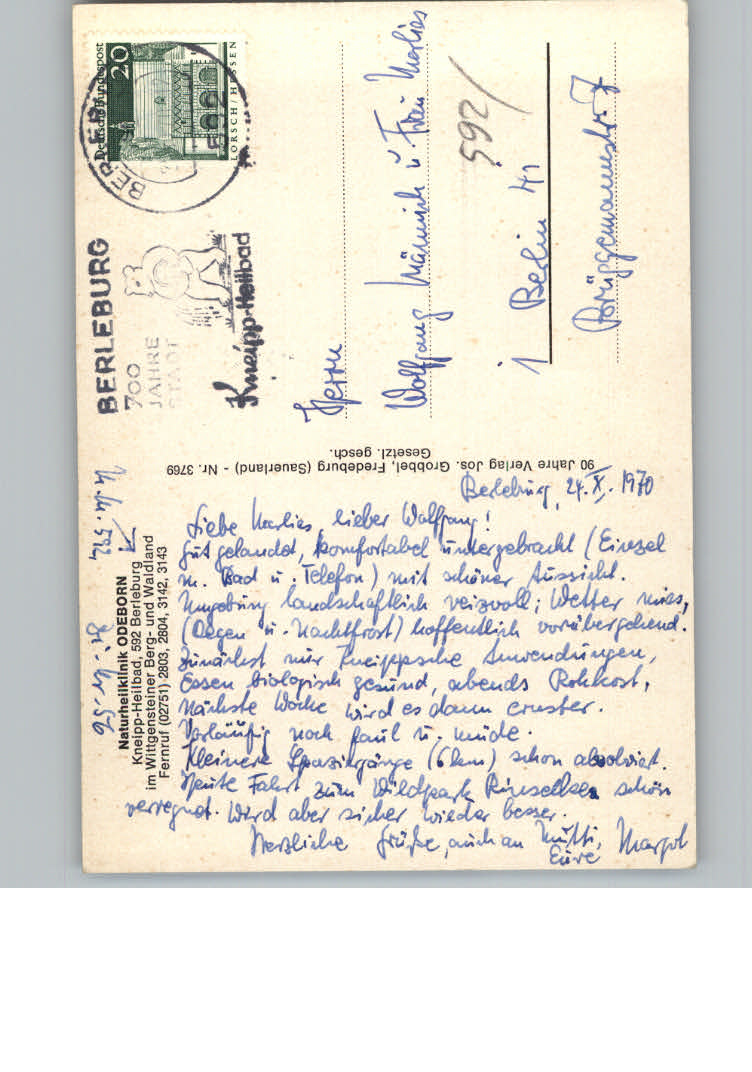 Deutsche Bundespost
20
LORSCH / HESSEN
BERLEBURG
700
JAHRE
STADT
Kneipp-Heilbad
592
Herrn
Wolfgang Männich u. Frau Marlies
1 Berlin 41
Brüggemannstr. 7
90 Jahre Verlag Jos. Grobbel, Fredeburg (Sauerland) - Nr. 3769
Gesetzl. gesch.
Naturheilklinik ODEBORN
Kneipp-Heilbad, 592 Berleburg
im Wittgensteiner Berg- und Waldland
Fernruf (02751) 2803, 2804, 3142, 3143
Berleburg, 24. X. 1970
Liebe Marlies, lieber Wolfgang!
gut gelandet, komfortabel untergebracht (Einzel
m. Bad u. Telefon) mit schöner Aussicht.
Umgebung landschaftlich reizvoll; Wetter mies,
(Regen u. Nachtfrost) hoffentlich vorübergehend.
Zunächst nur Kneippsche Anwendungen,
Essen biologisch gesund, abends Rohkost,
nächste Woche wird es dann ernster.
Vorläufig noch faul u. müde.
Kleinere Spaziergänge (6 km) schon absolviert.
Heute Fahrt zum Wildpark schön
verregnet. Wird aber sicher wieder besser.
Herzliche Grüße, auch an Mutti,
Eure Margot